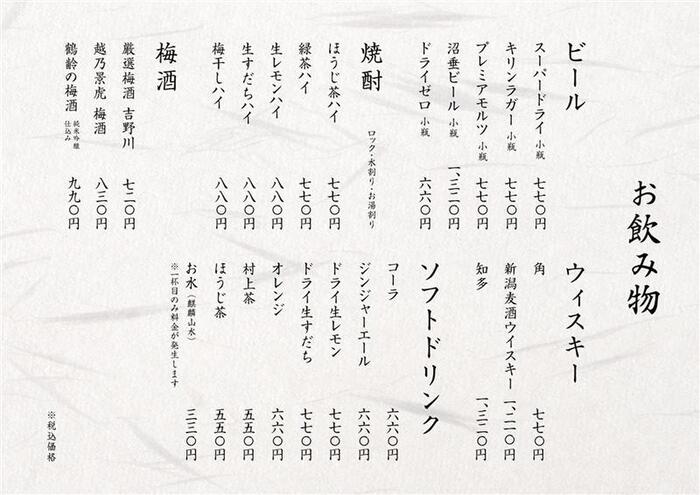 お飲み物
ビール
スーパードライ 小瓶 七七〇円
キリンラガー 小瓶 七七〇円
プレミアモルツ 小瓶 七七〇円
沼垂ビール 小瓶 一、三二〇円
ドライゼロ 小瓶 六六〇円
焼酎 ロック・水割り・お湯割り
ほうじ茶ハイ 七七〇円
緑茶ハイ 七七〇円
生レモンハイ 八八〇円
生すだちハイ 八八〇円
梅干しハイ 八八〇円
梅酒
厳選梅酒 吉野川 七二〇円
越乃景虎 梅酒 八三〇円
鶴齢の梅酒 純米吟醸仕込み 九九〇円
ウィスキー
角 七七〇円
新潟麦酒ウイスキー 一、二一〇円
知多 一、三二〇円
ソフトドリンク
コーラ 六六〇円
ジンジャーエール 六六〇円
ドライ生レモン 七七〇円
ドライ生すだち 七七〇円
オレンジ 六六〇円
村上茶 五五〇円
ほうじ茶 五五〇円
お水（麒麟山水） 三三〇円
※一杯目のみ料金が発生します
※税込価格